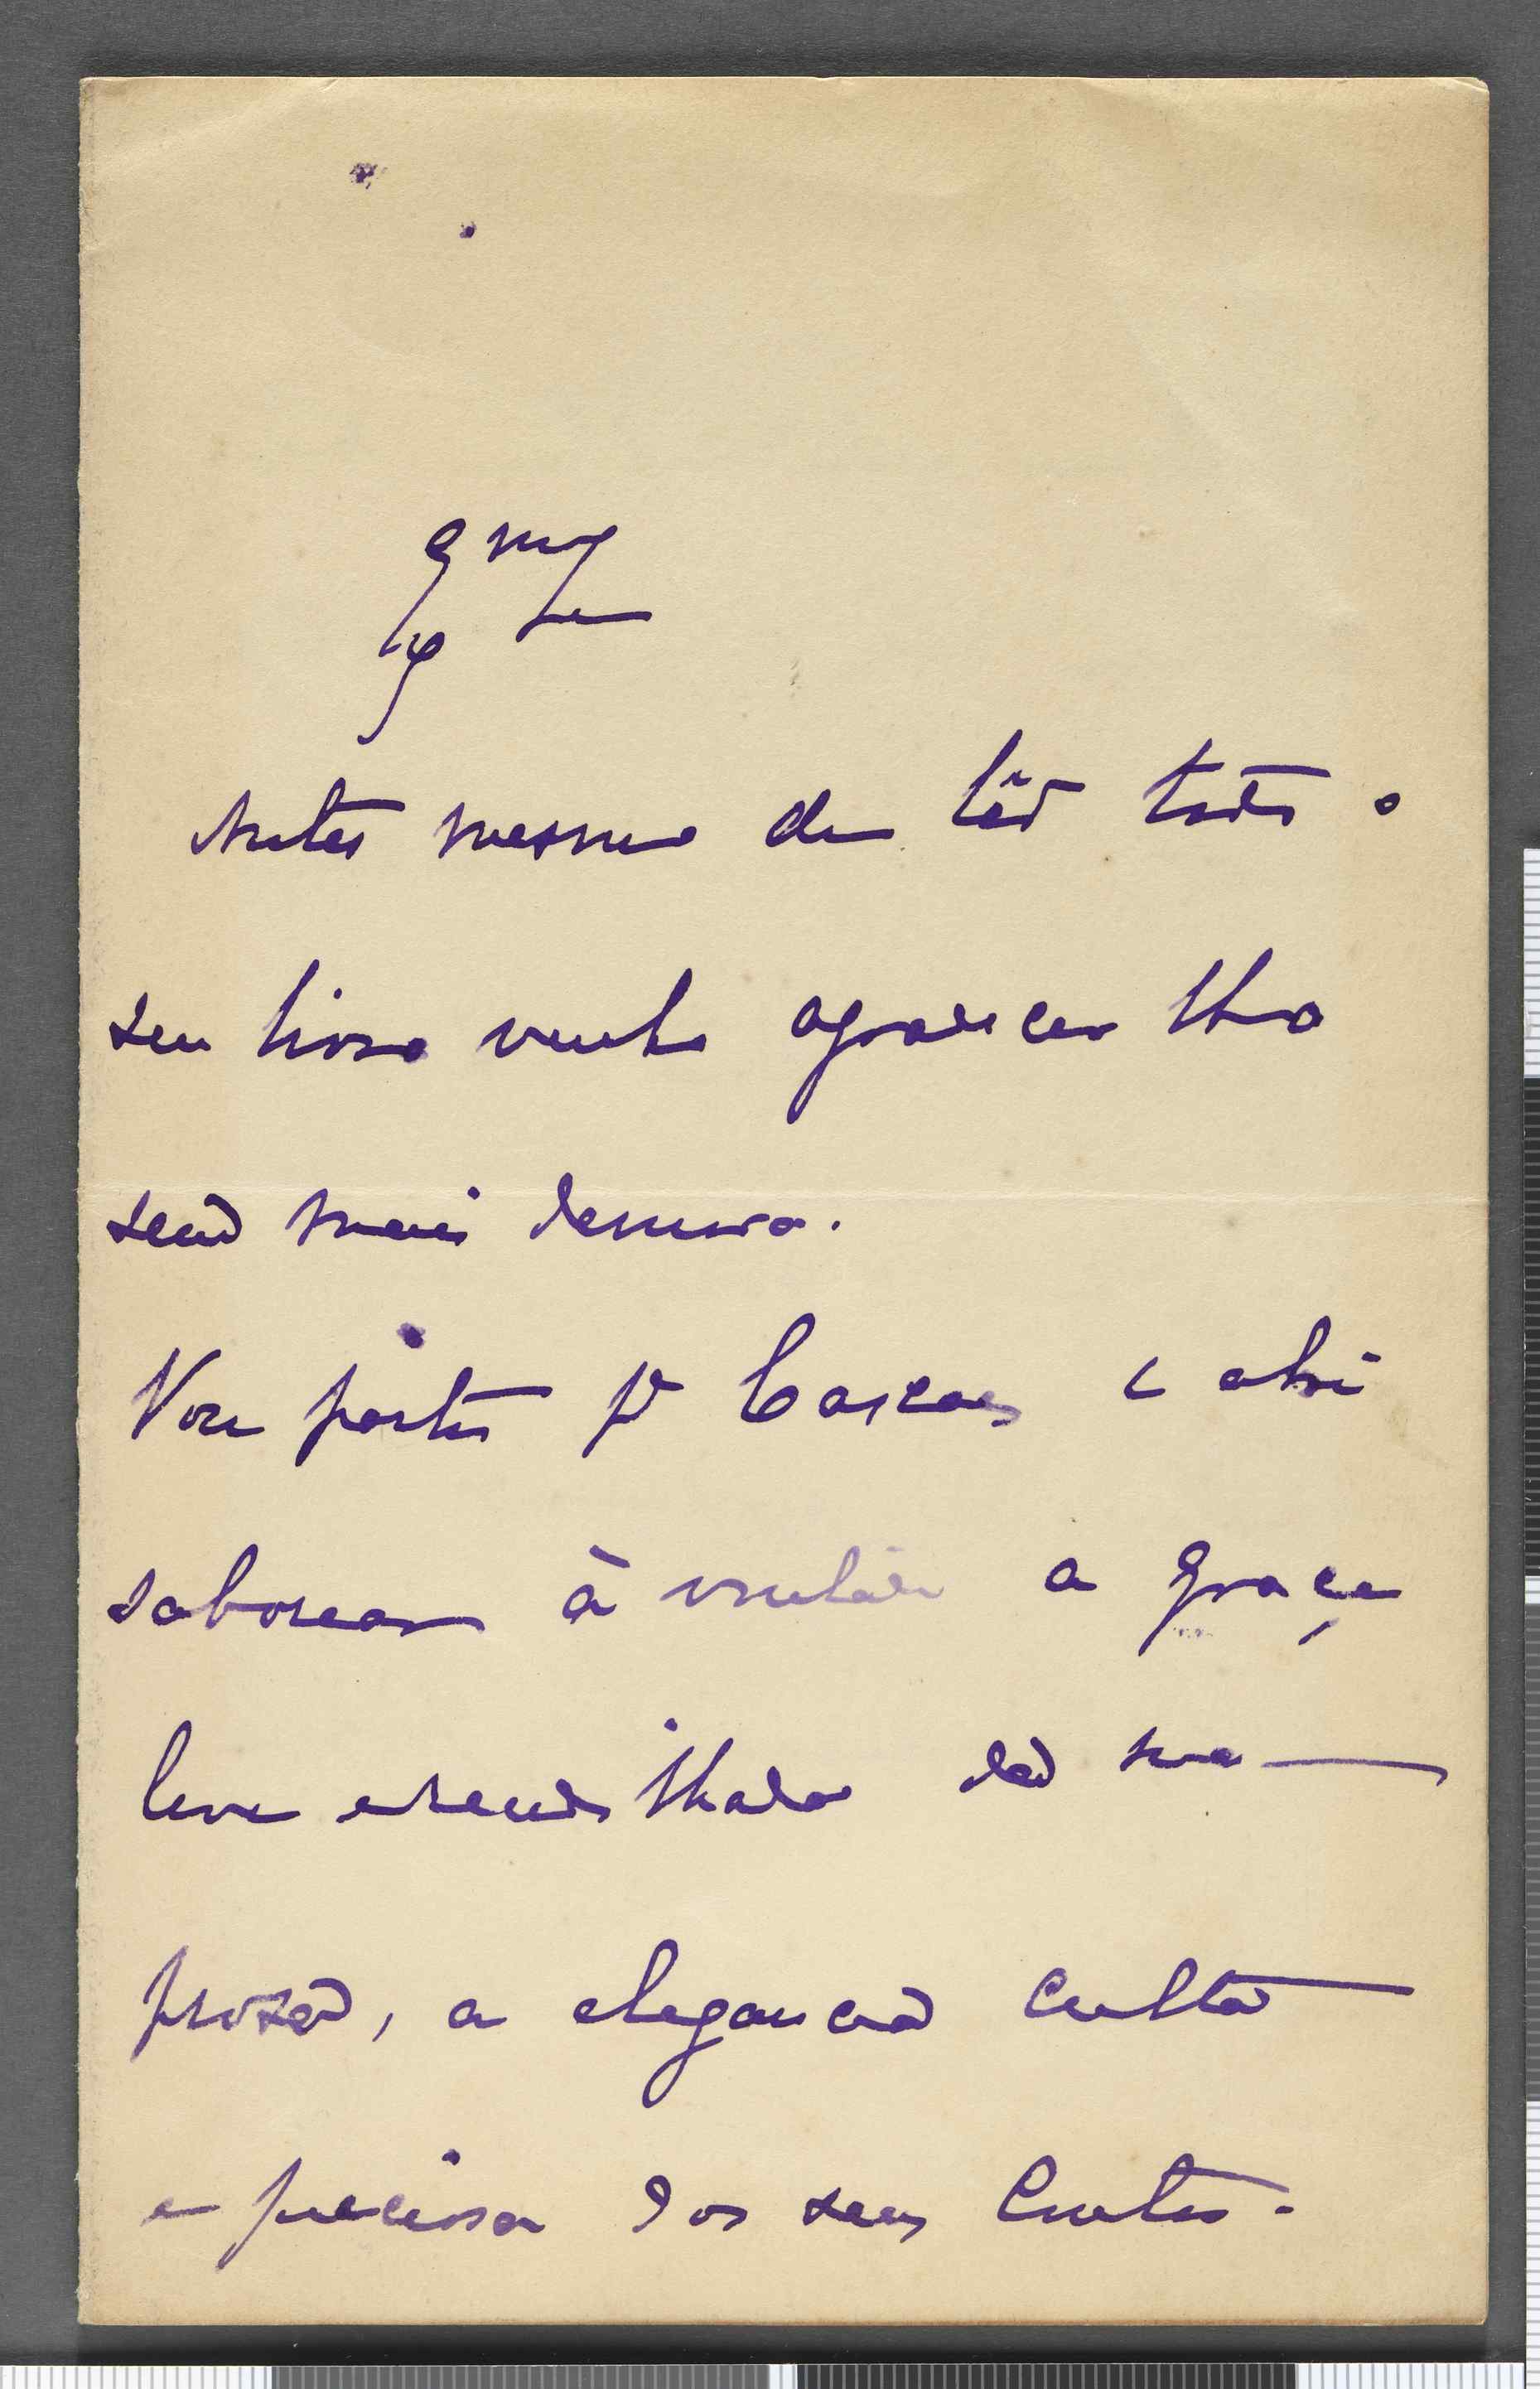 Antes mesmo de lêr todo o
seu livro venho agradecer lho
sem mais demora.
Vou partir pª Cascaes e ahi
saborear à vontade a graça
leve e rendilhada da sua
proza, a elegancia culta
e precisa dos seus Contos.